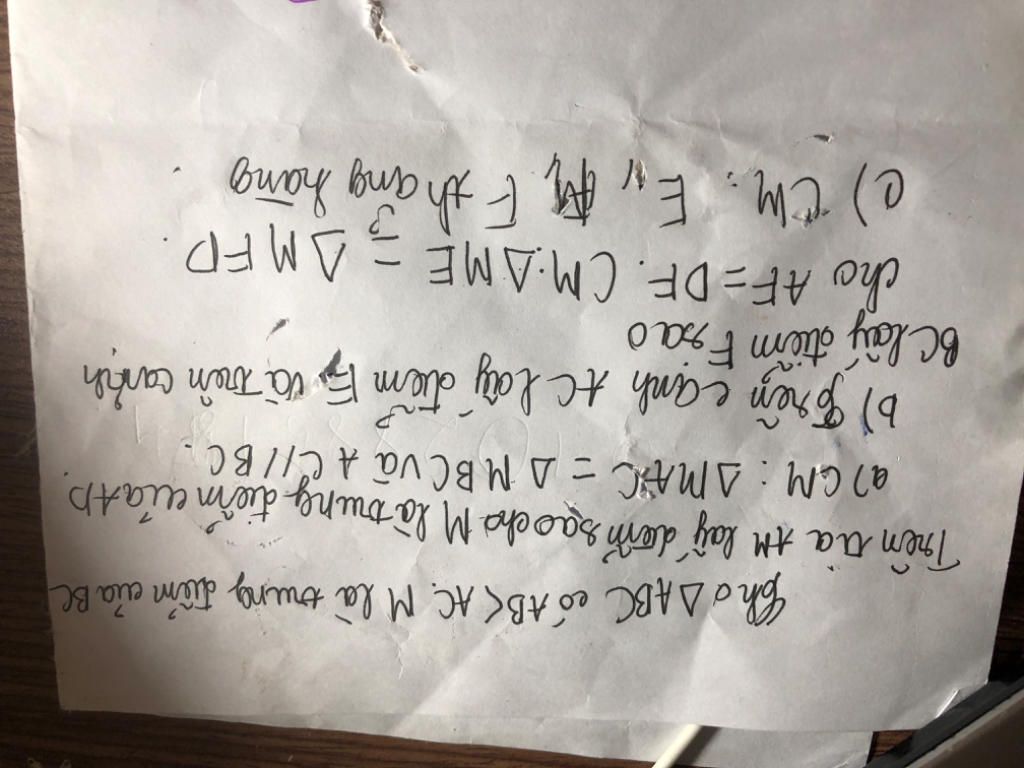 Cho ΔABC có AB<AC. M là trung điểm của BC
Trên tia AM lấy điểm sao cho M là trung điểm của AD.
a) CM: ΔMAC = ΔMBC và AC//BC.
b) Trên cạnh AC lấy điểm E và trên cạnh
BC lấy điểm F sao
cho AF=DF. CM.ΔME = ΔMFD.
c) CM: E, M, F thẳng hàng.